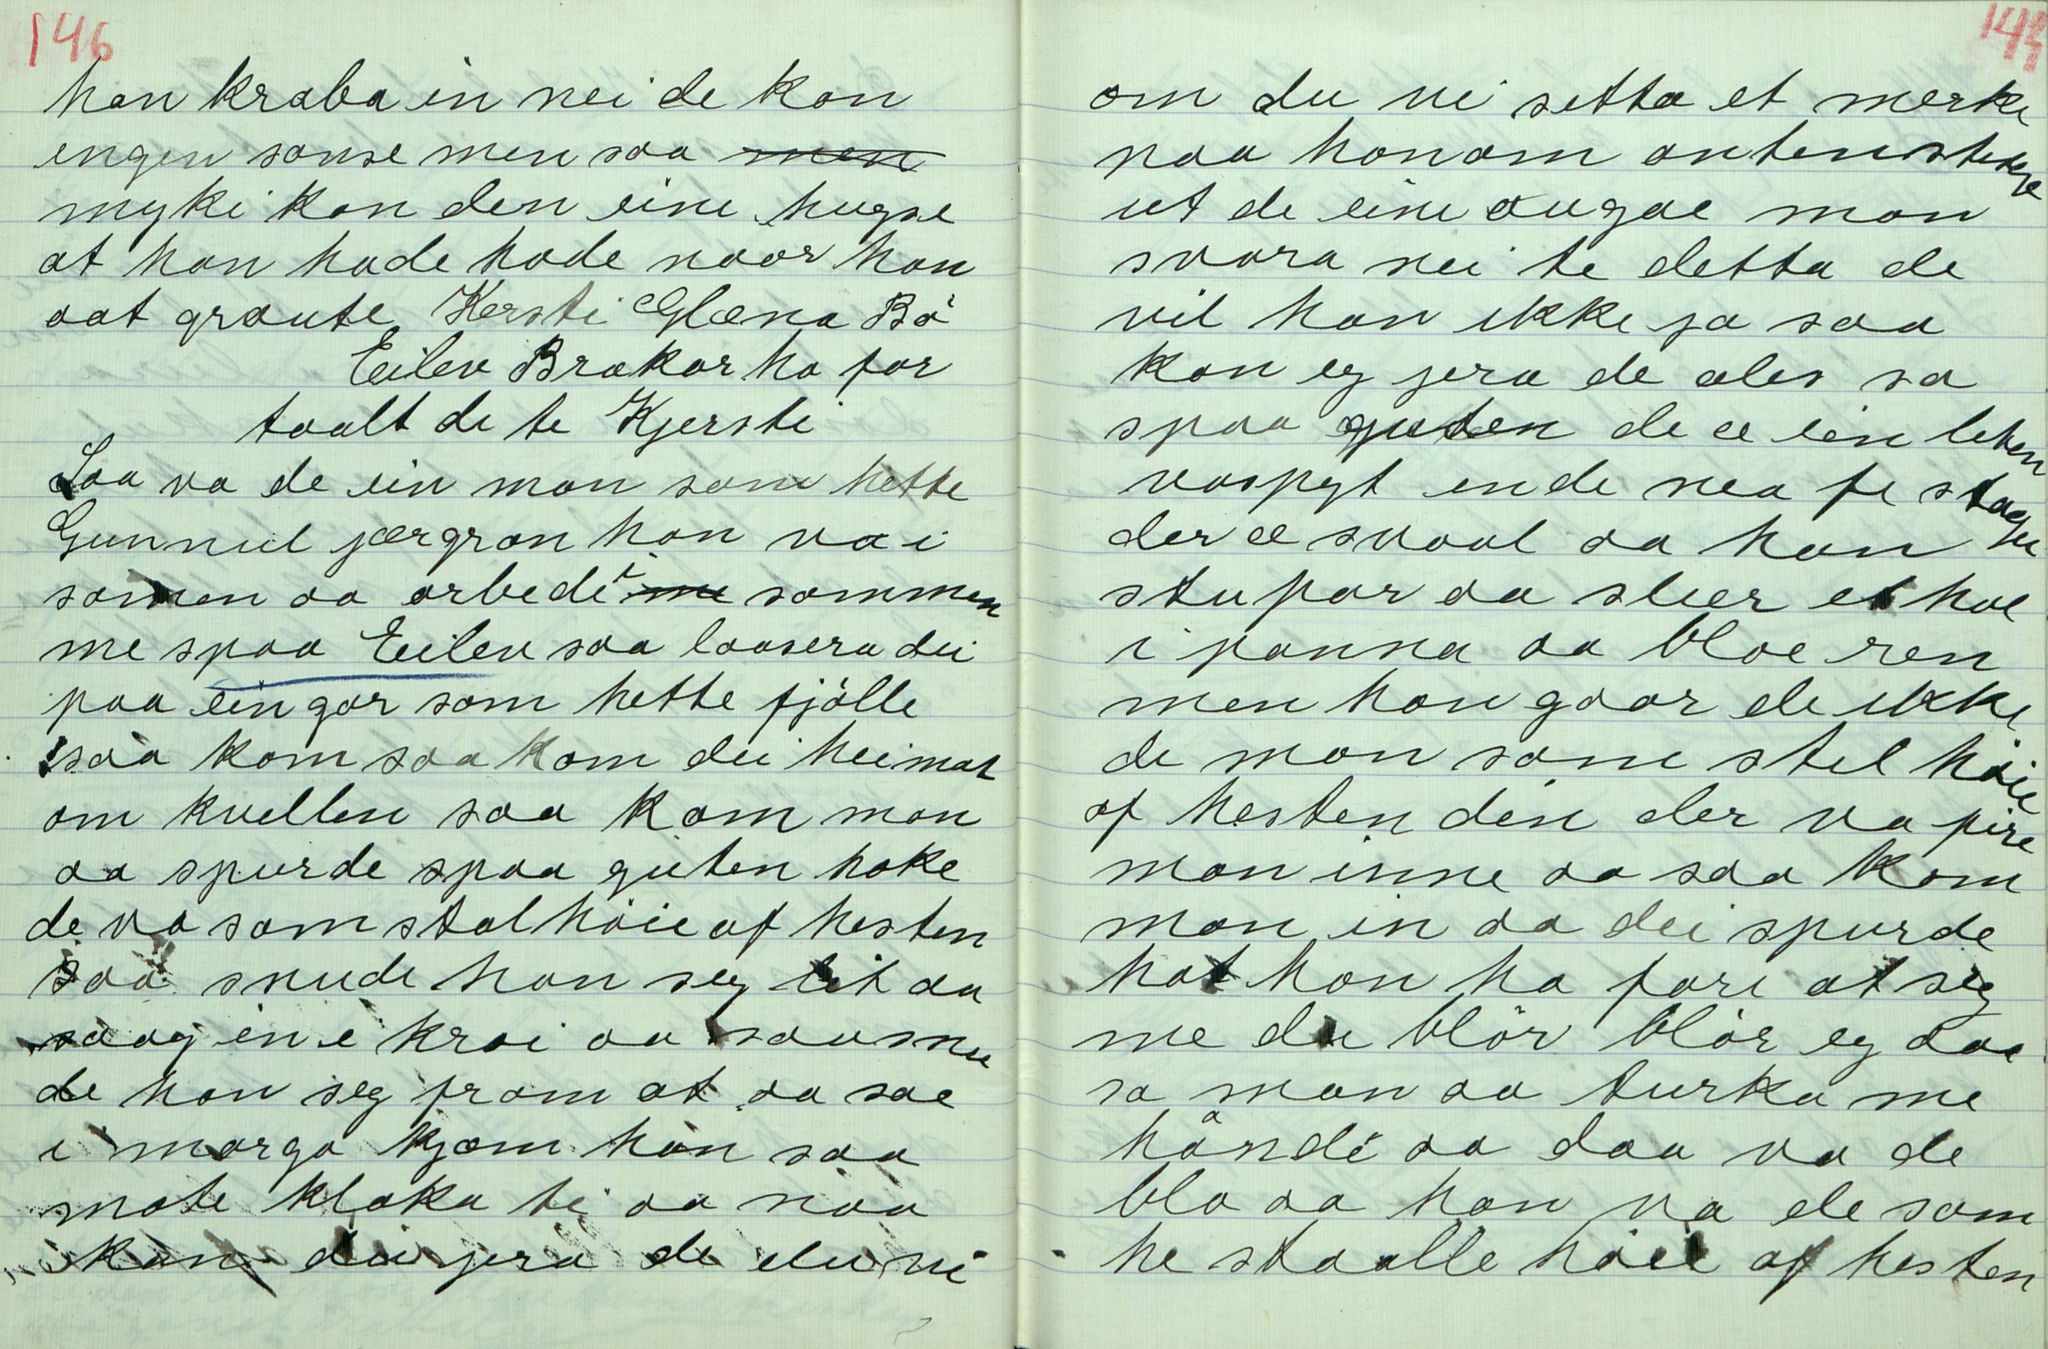 146
han kraba in nei de kan
ingen sanse men saa men
myki kan den eine hugse
at han hade hode naar han
aat graute Kersti Glæna Bö
Eilev Brakar ha for
taalt de te Kjersti
Saa va de ein man som hette
Gunnul jærgran han va i
samen aa arbedi i me sammen
me spaa Eilev saa loosera dei
paa ein gar som hette fjölle
saa kom saa kom dei heimat
om kvellen saa kom man
aa spurde spaa guten hoke
de va som stal höie af hesten
saa snude han seg lit aa
saag in i kroi aa saa snu
de han seg fram at aa sae
i morga kjæm han saa
mote klaka ti aa naa
kan du jera de du vi
147
om du vi setta et merke
paa honom anten stikke
ut de eine augae man
svara nei te detta de
vil han ikke ja saa
kan eg jera de ales sa
spaa guten de æ ein liten
vaspyt ende nea fe stogu
der æ svaal aa han
stupar aa sleer et hol
i panna aa bloe ren
men han gaar de ikke
de man som stel höie
af hesten din der va fire
man inne aa saa kom
man in aa dei spurde
hat han ha fare at seg
me du blör blör eg daa
sa man aa turka me
håndi aa daa va de
blo aa han va de som
he staalle höie af hesten